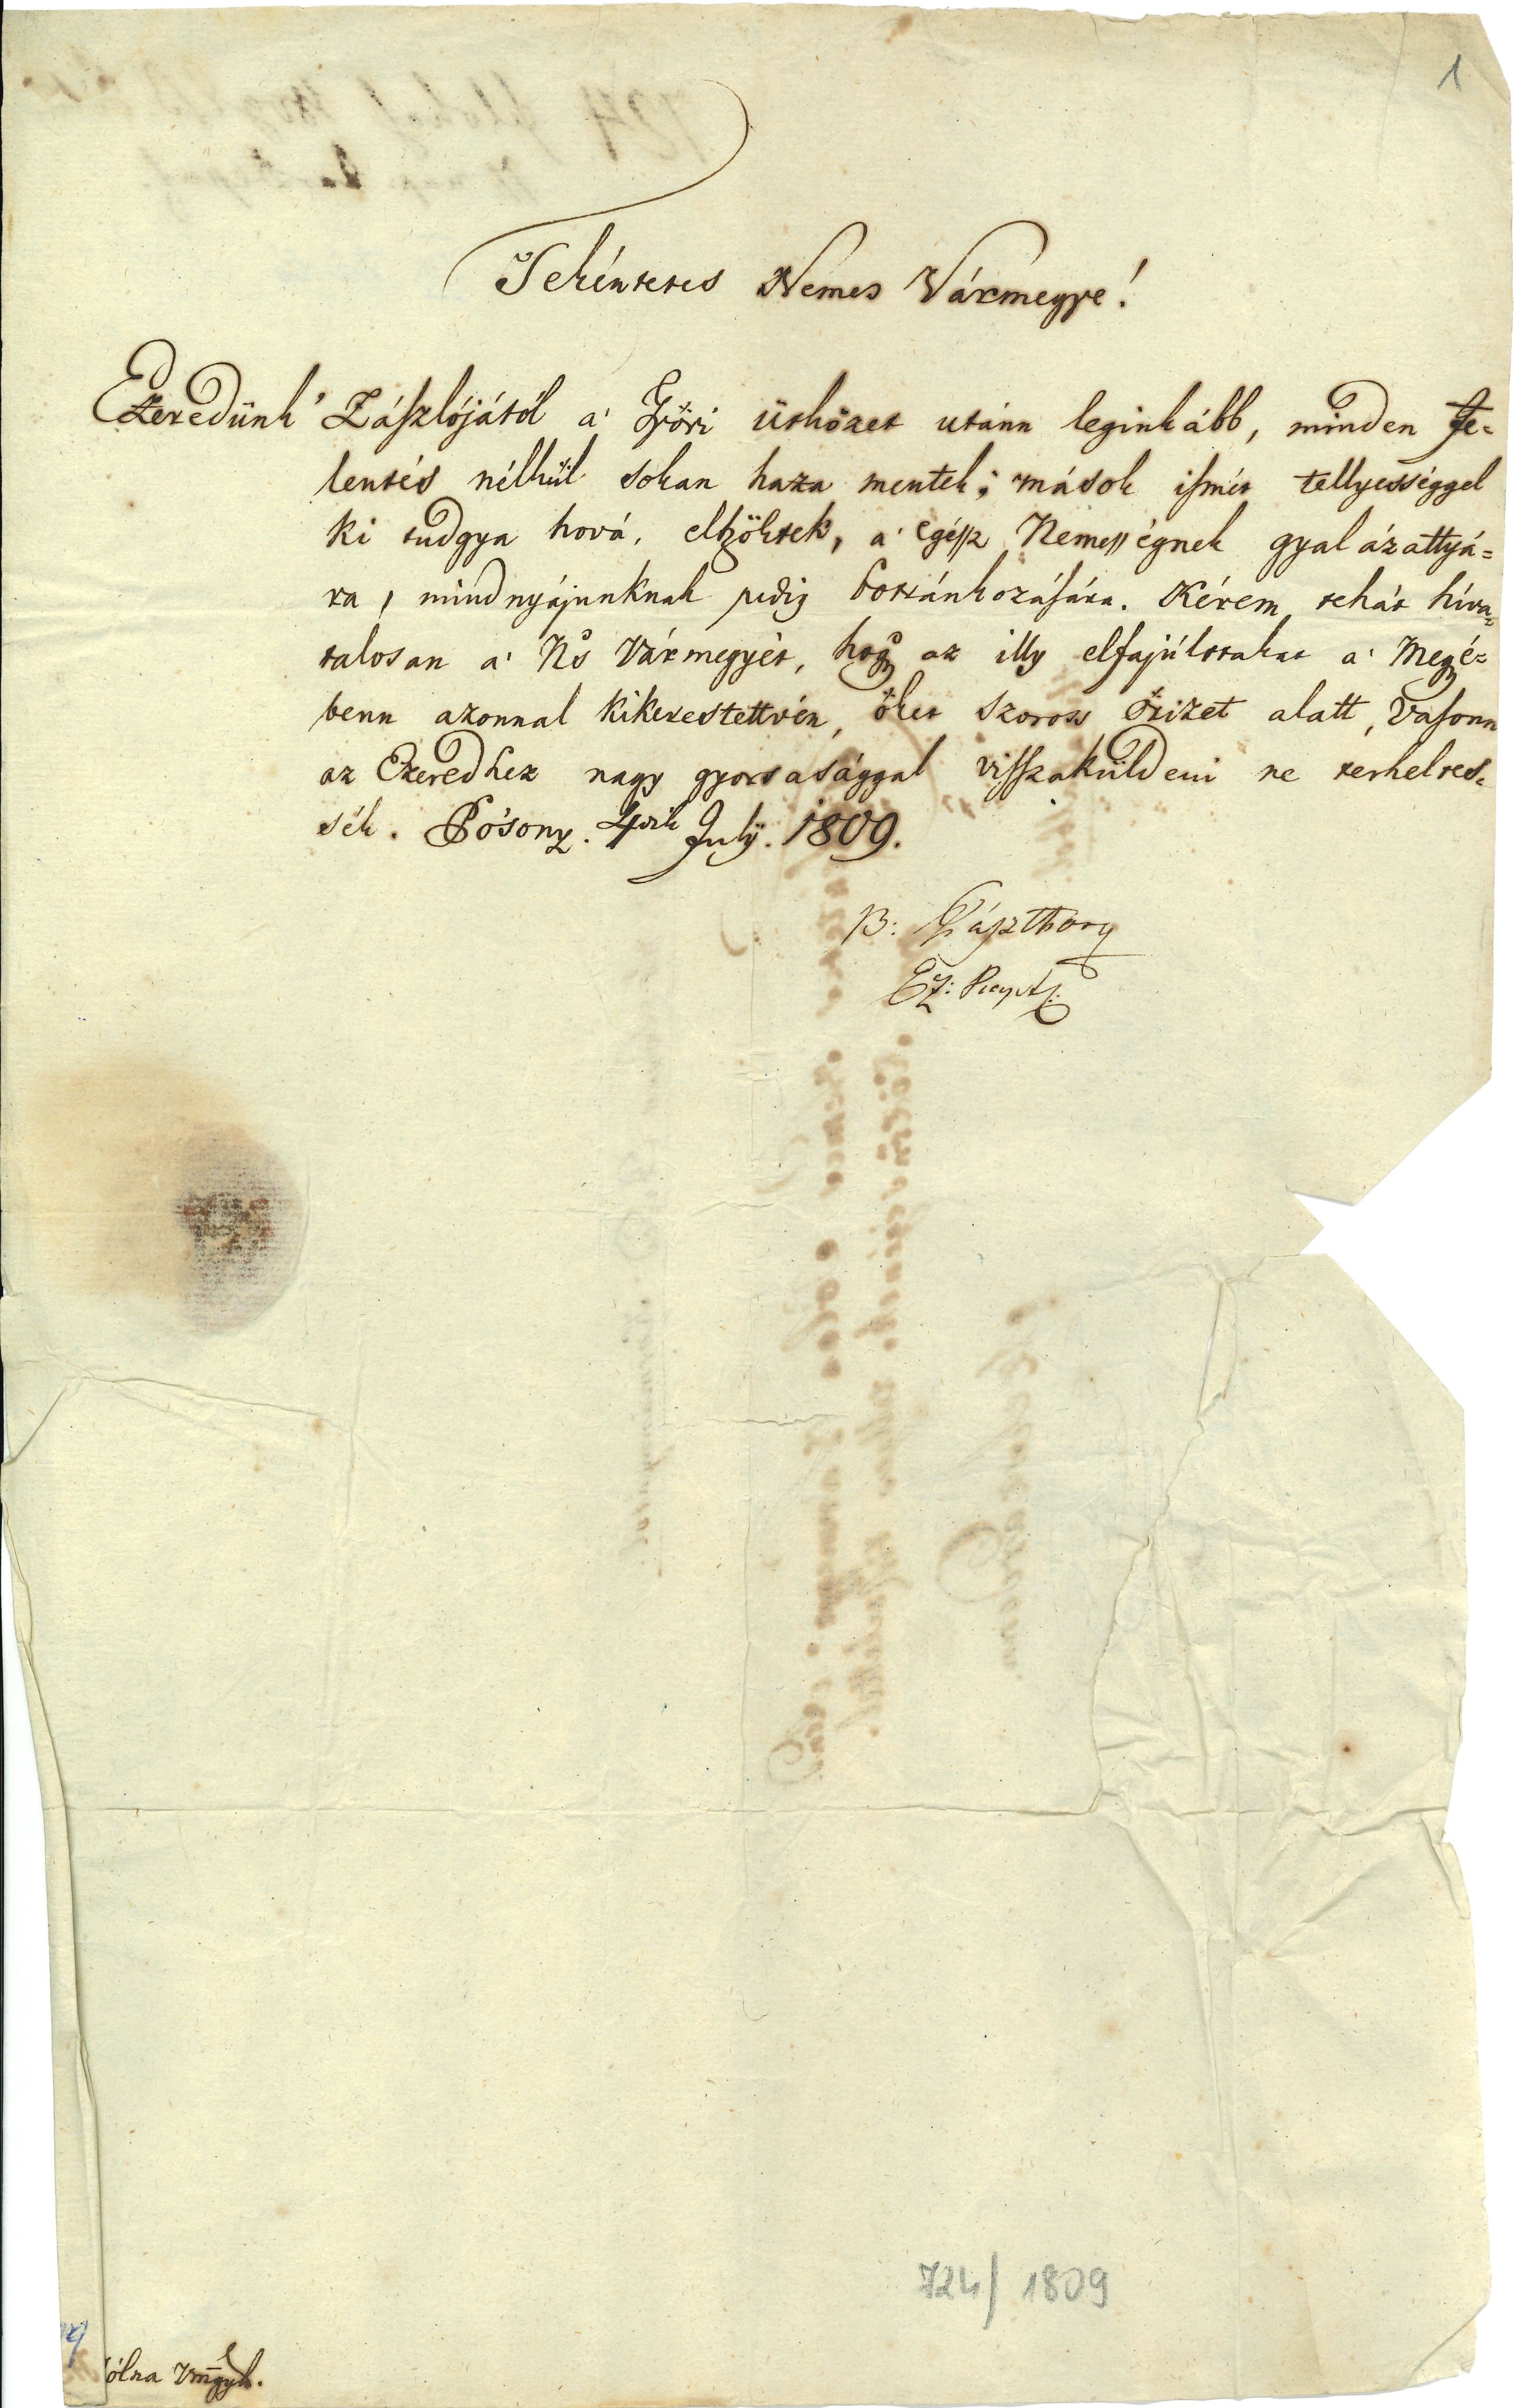 1
Tekéntetes Nemes Vármegye!
Ezeredünk' Zászlójától a' Győri ütközet utánn leginkább, minden Je-
lentés nélkül sokan haza mentek; mások ismét tellyességgel
ki tudgya hová, elszöktek, a' egész Nemességnek gyalázattyá-
ra, mindnyájunknak pedig bosszánkozására. Kérem tehát híva-
talosan a' Ns Vármegyét, hogy az illy elfajúlttakat a' Megyé-
benn azonnal kikerestettvén, őket szoross őrizet alatt, Vasonn
az Ezeredhez nagy gyorsasággal visszaküldeni ne terheltes-
sék. Pósony. 4dik July. 1809.
B: Pászthory
Ez:
724/1809
ólna Vmgyk.